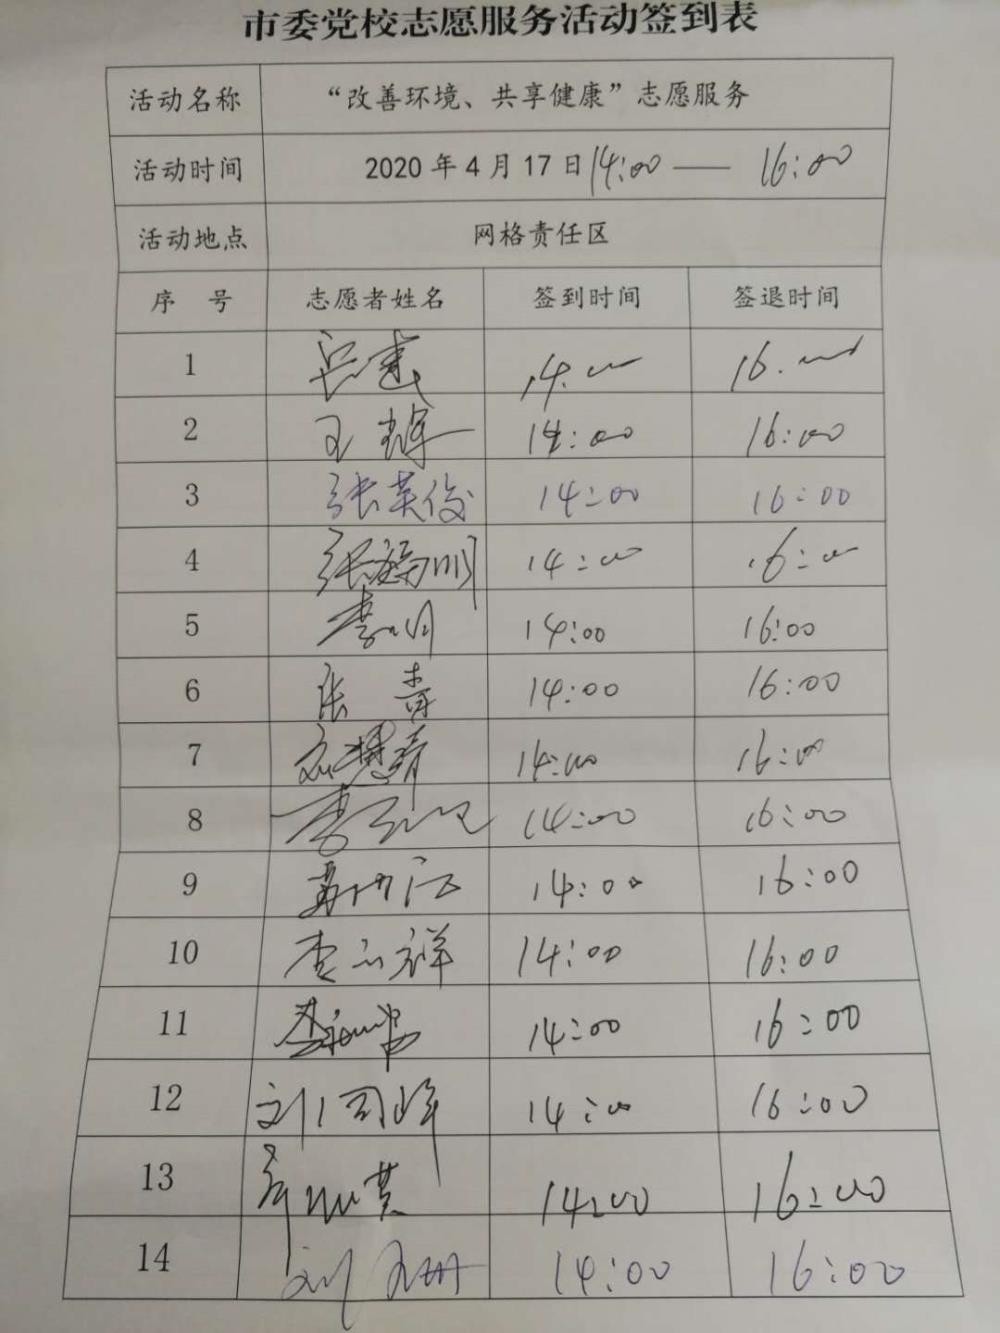 市委党校志愿服务活动签到表
活动名称 “改善环境、共享健康”志愿服务
活动时间 2020 年 4 月 17 日 14:00 — 16:00
活动地点 网格责任区
序 号 志愿者姓名 签到时间 签退时间
1 14:00 16:00
2 王辉 14:00 16:00
3 张英俊 14:00 16:00
4 张福明 14:00 16:00
5 李明 14:00 16:00
6 张青 14:00 16:00
7 14:00 16:00
8 14:00 16:00
9 14:00 16:00
10 14:00 16:00
11 14:00 16:00
12 14:00 16:00
13 14:00 16:00
14 14:00 16:00